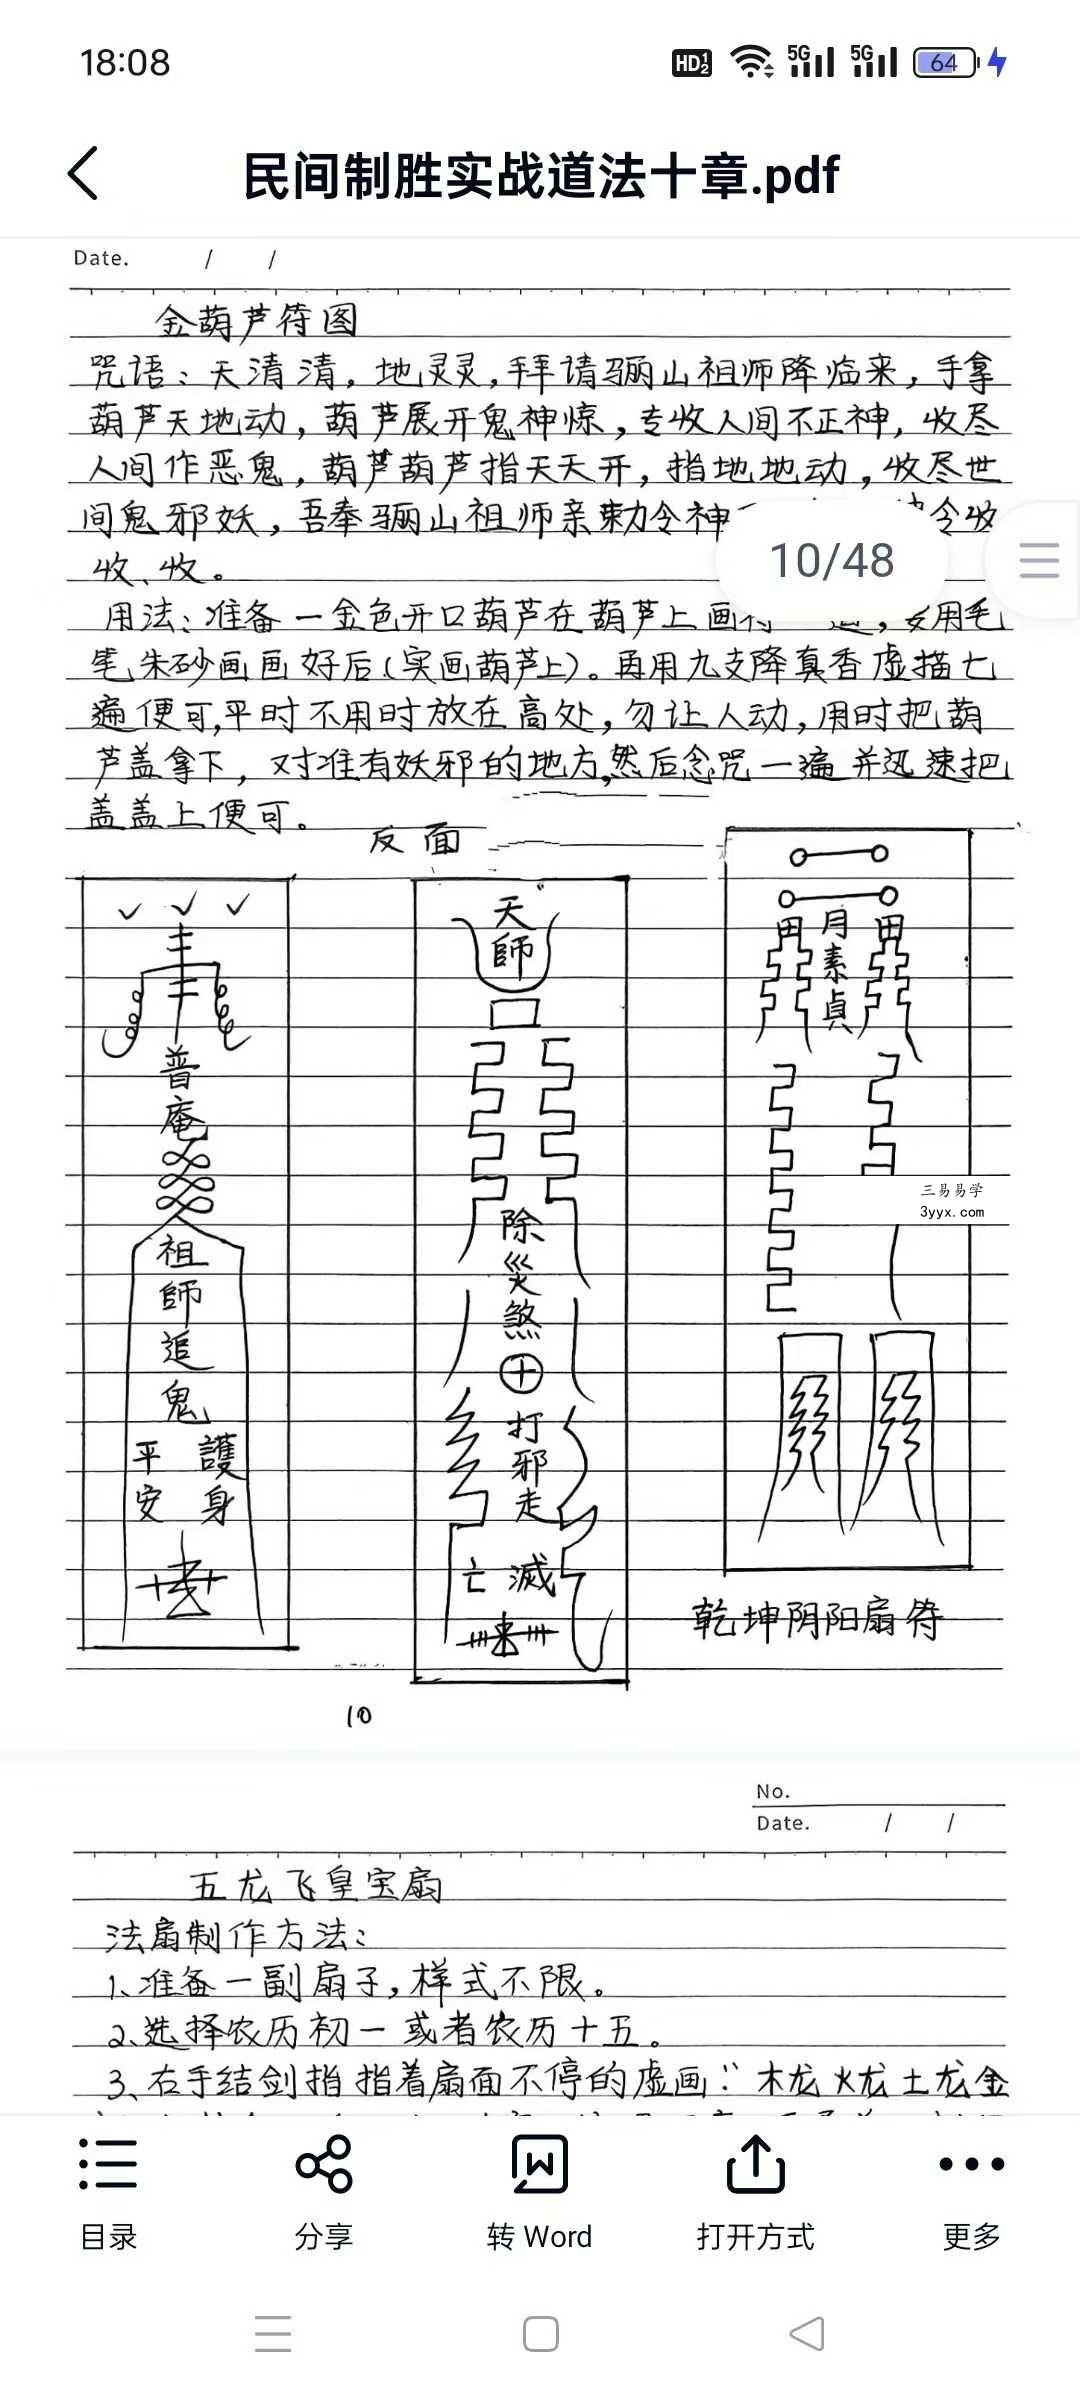 18:08
HD 1 2 5G 5G 64
民间制胜实战道法十章.pdf
Date. / /
金葫芦符图
咒语：天清清，地灵灵，拜请骊山祖师降临来，手拿
葫芦天地动，葫芦展开鬼神惊，专收人间不正神，收尽
人间作恶鬼，葫芦葫芦指天天开，指地地动，收尽世
间鬼邪妖，吾奉骊山祖师亲勅令神 令收
10/48
收、收。
用法：准备一金色开口葫芦在葫芦上画符 ，要用毛
笔朱砂画画好后（实画葫芦上）。再用九支降真香虚描七
遍便可，平时不用时放在高处，勿让人动，用时把葫
芦盖拿下，对准有妖邪的地方，然后念咒一遍并迅速把
盖盖上便可。
反面
普
庵
祖
師
追
鬼
平 護
安 身
天
師
除
災
煞
打
邪
走
亡 滅
田 月 田
素
貞
三易易学
3yyx.com
乾坤阴阳扇符
10
No.
Date. / /
五龙飞皇宝扇
法扇制作方法：
1、准备一副扇子，样式不限。
2、选择农历初一或者农历十五。
3、右手结剑指指着扇面不停的虚画：“木龙火龙土龙金
目录
分享
转 Word
打开方式
更多